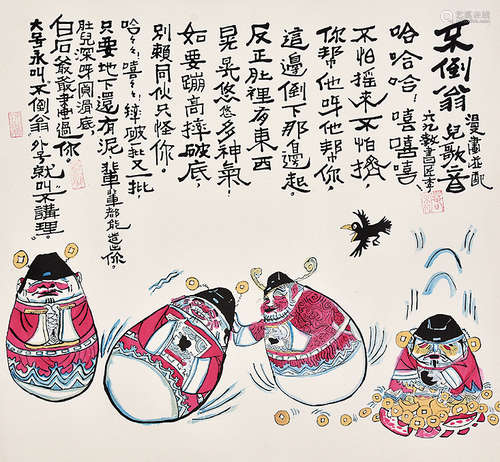 不倒翁
兒歌一
漫畫並配
哈哈哈！嘻嘻嘻
不怕搖來不怕擠，
你幫他呀他幫你，
這邊倒下那邊起。
反正肚裡有東西
晃晃悠悠多神氣！
如要蹦高摔破底，
別賴同伙只怪你。
哈哈嘻嘻摔破一批又一批
只要地下還有泥 輩輩都能造出你。
肚兒深呀 滑底，
白石爺爺畫過你
大号永叫不倒翁 外号就叫不講理。